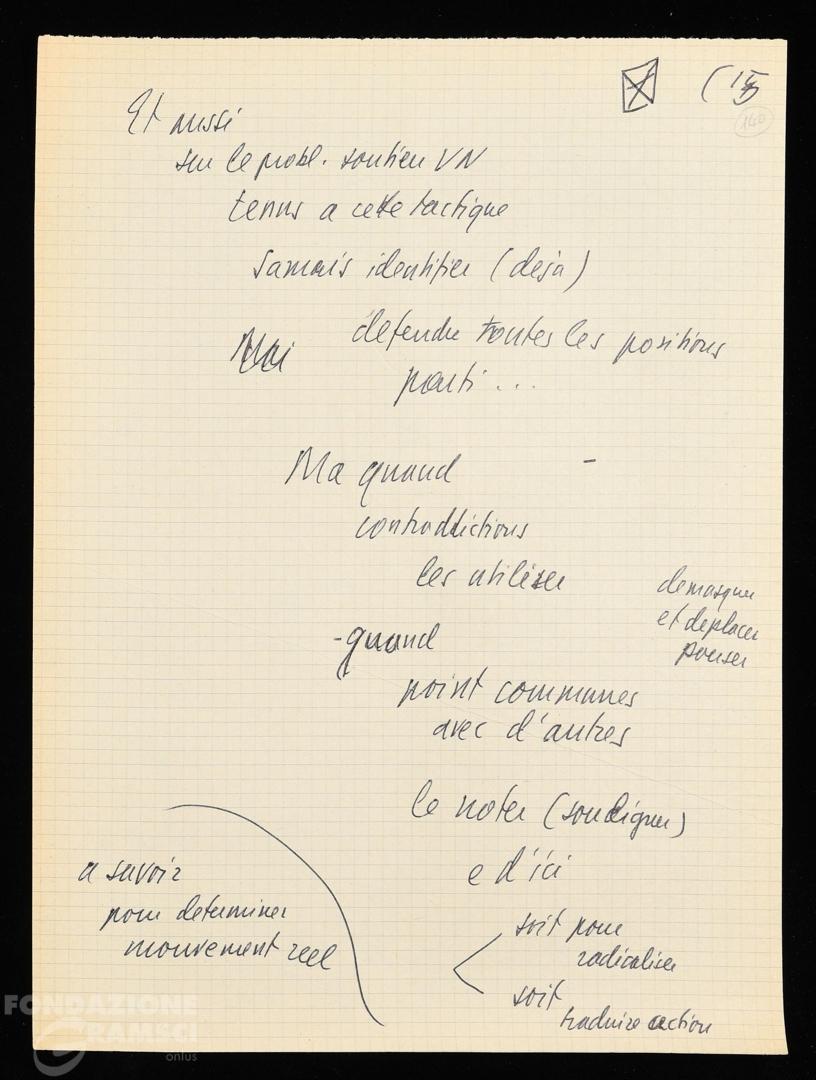 (15
140
Et aussi
sur le probl. soutien VN
tenus a cette tactique
Jamais identifier (deja)
Moi defendre toutes les positions
parti ...
Ma quand -
contraddictions
les utiliser
demasquer
et deplacer
pouser
- quand
point communes
avec d'autres
le noter (souligner)
e d'ici
soit pour
radicaliser
soit
traduire action
a savoir
pour determiner
mouvement reel
FONDAZIONE
GRAMSCI
onlus